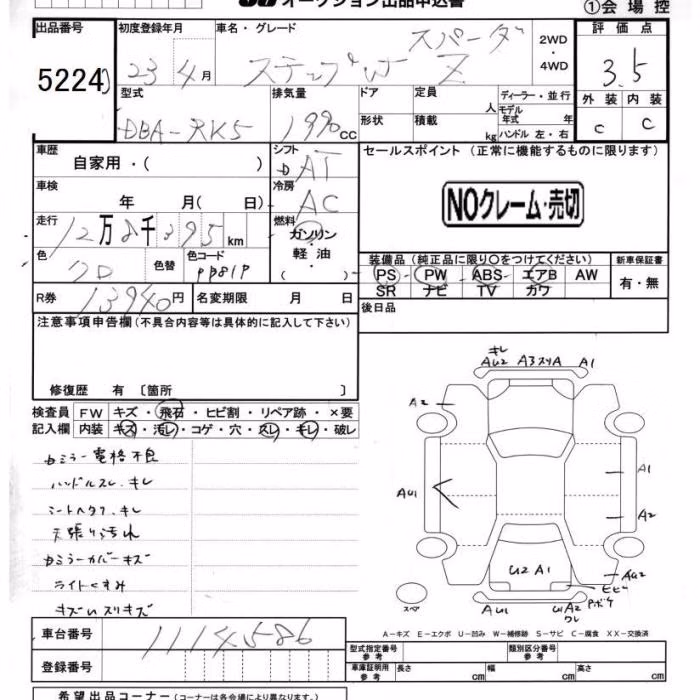 オークション出品申込書
①会場控
出品番号 初度登録年月 車名・グレード 評価点
5224
23年4月 ステップW スパーダ Z 2WD・4WD 3.5
型式 排気量 ドア 定員 人 ディーラー・並行
外装 内装
DBA-RK5 1990cc 形状 積載 kg モデル年式 年
ハンドル 左・右
C C
車歴 シフト セールスポイント(正常に機能するものに限ります)
自家用・( ) AT
車検 冷房
年 月( 日) AC
NOクレーム・売切
走行 12万8千395km 燃料
ガソリン・軽油
( )
色 色替 色コード
装備品(純正品に限り○をつけてください) 新車保証書
PS PW ABS エアB AW 有・無
SR ナビ TV カワ
R券 13940円 名変期限 月 日 後日品
注意事項申告欄(不具合内容等は具体的に記入して下さい)
修復歴 有 〔箇所 〕
検査員記入欄 FW キズ・飛石・ヒビ割・リペア跡・×要
内装 キズ・汚レ・コゲ・穴・スレ・キレ・破レ
カミラー電格不良
ハンドルスレ.キレ
シートヘタリ.キレ
天張り汚れ
カミラーカバーキズ
ライトくすみ
キズUスリキズ
キレ
AU2 A3スリA A1
A2
A1
AU1
A2
U2 A1
AU2
ヒビ
スペア
AU1 U1A2 P.ボケ
ワレ
A－キズ E－エクボ U－凹み W－補修跡 S－サビ C－腐食 XX－交換済
車台番号 1114586
登録番号
型式指定番号 参考 類別区分番号 参考
車庫証明用 参考 長さ cm 幅 cm 高さ cm
希望出品コーナー(コーナーは各会場により異なります。)